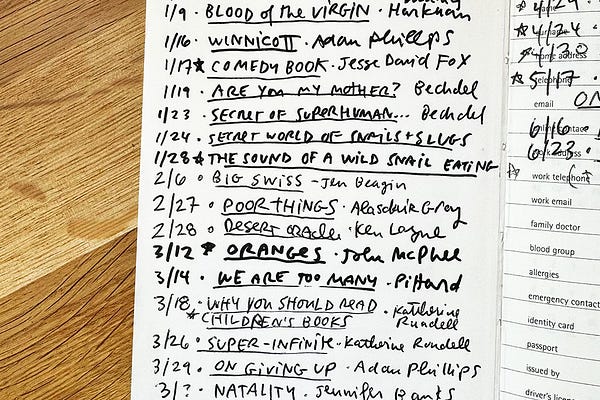 1/9 · BLOOD of the VIRGIN · Harkham
1/16 · WINNICOTT · Adam Phillips
1/17 ★ COMEDY BOOK · Jesse David Fox
1/19 · ARE YOU MY MOTHER? Bechdel
1/23 · SECRET OF SUPERHUMAN... Bechdel
1/24 · SECRET WORLD OF SNAILS + SLUGS
1/28 ★ THE SOUND OF A WILD SNAIL EATING
2/6 · BIG SWISS - Jen Beagin
2/27 · POOR THINGS · Alasdair Gray
2/28 · DESERT ORACLE · Ken Layne
3/12 ★ ORANGES · John McPhee
3/14 · WE ARE TOO MANY · Pittard
3/18 · WHY YOU SHOULD READ
★ CHILDREN'S BOOKS · Katherine Rundell
3/26 · SUPER-INFINITE · Katherine Rundell
3/29 · ON GIVING UP · Adam Phillips
3/? · NATALITY · Jennifer Banks
★ 4/24 ·
★ 4/24 ·
★ 4/30 ·
address
★ 5/17 ·
telephone
email
ON
6/16 ·
6/23 ·
address
work telephone
work email
family doctor
blood group
allergies
emergency contact
identity card
passport
issued by
driver's licen